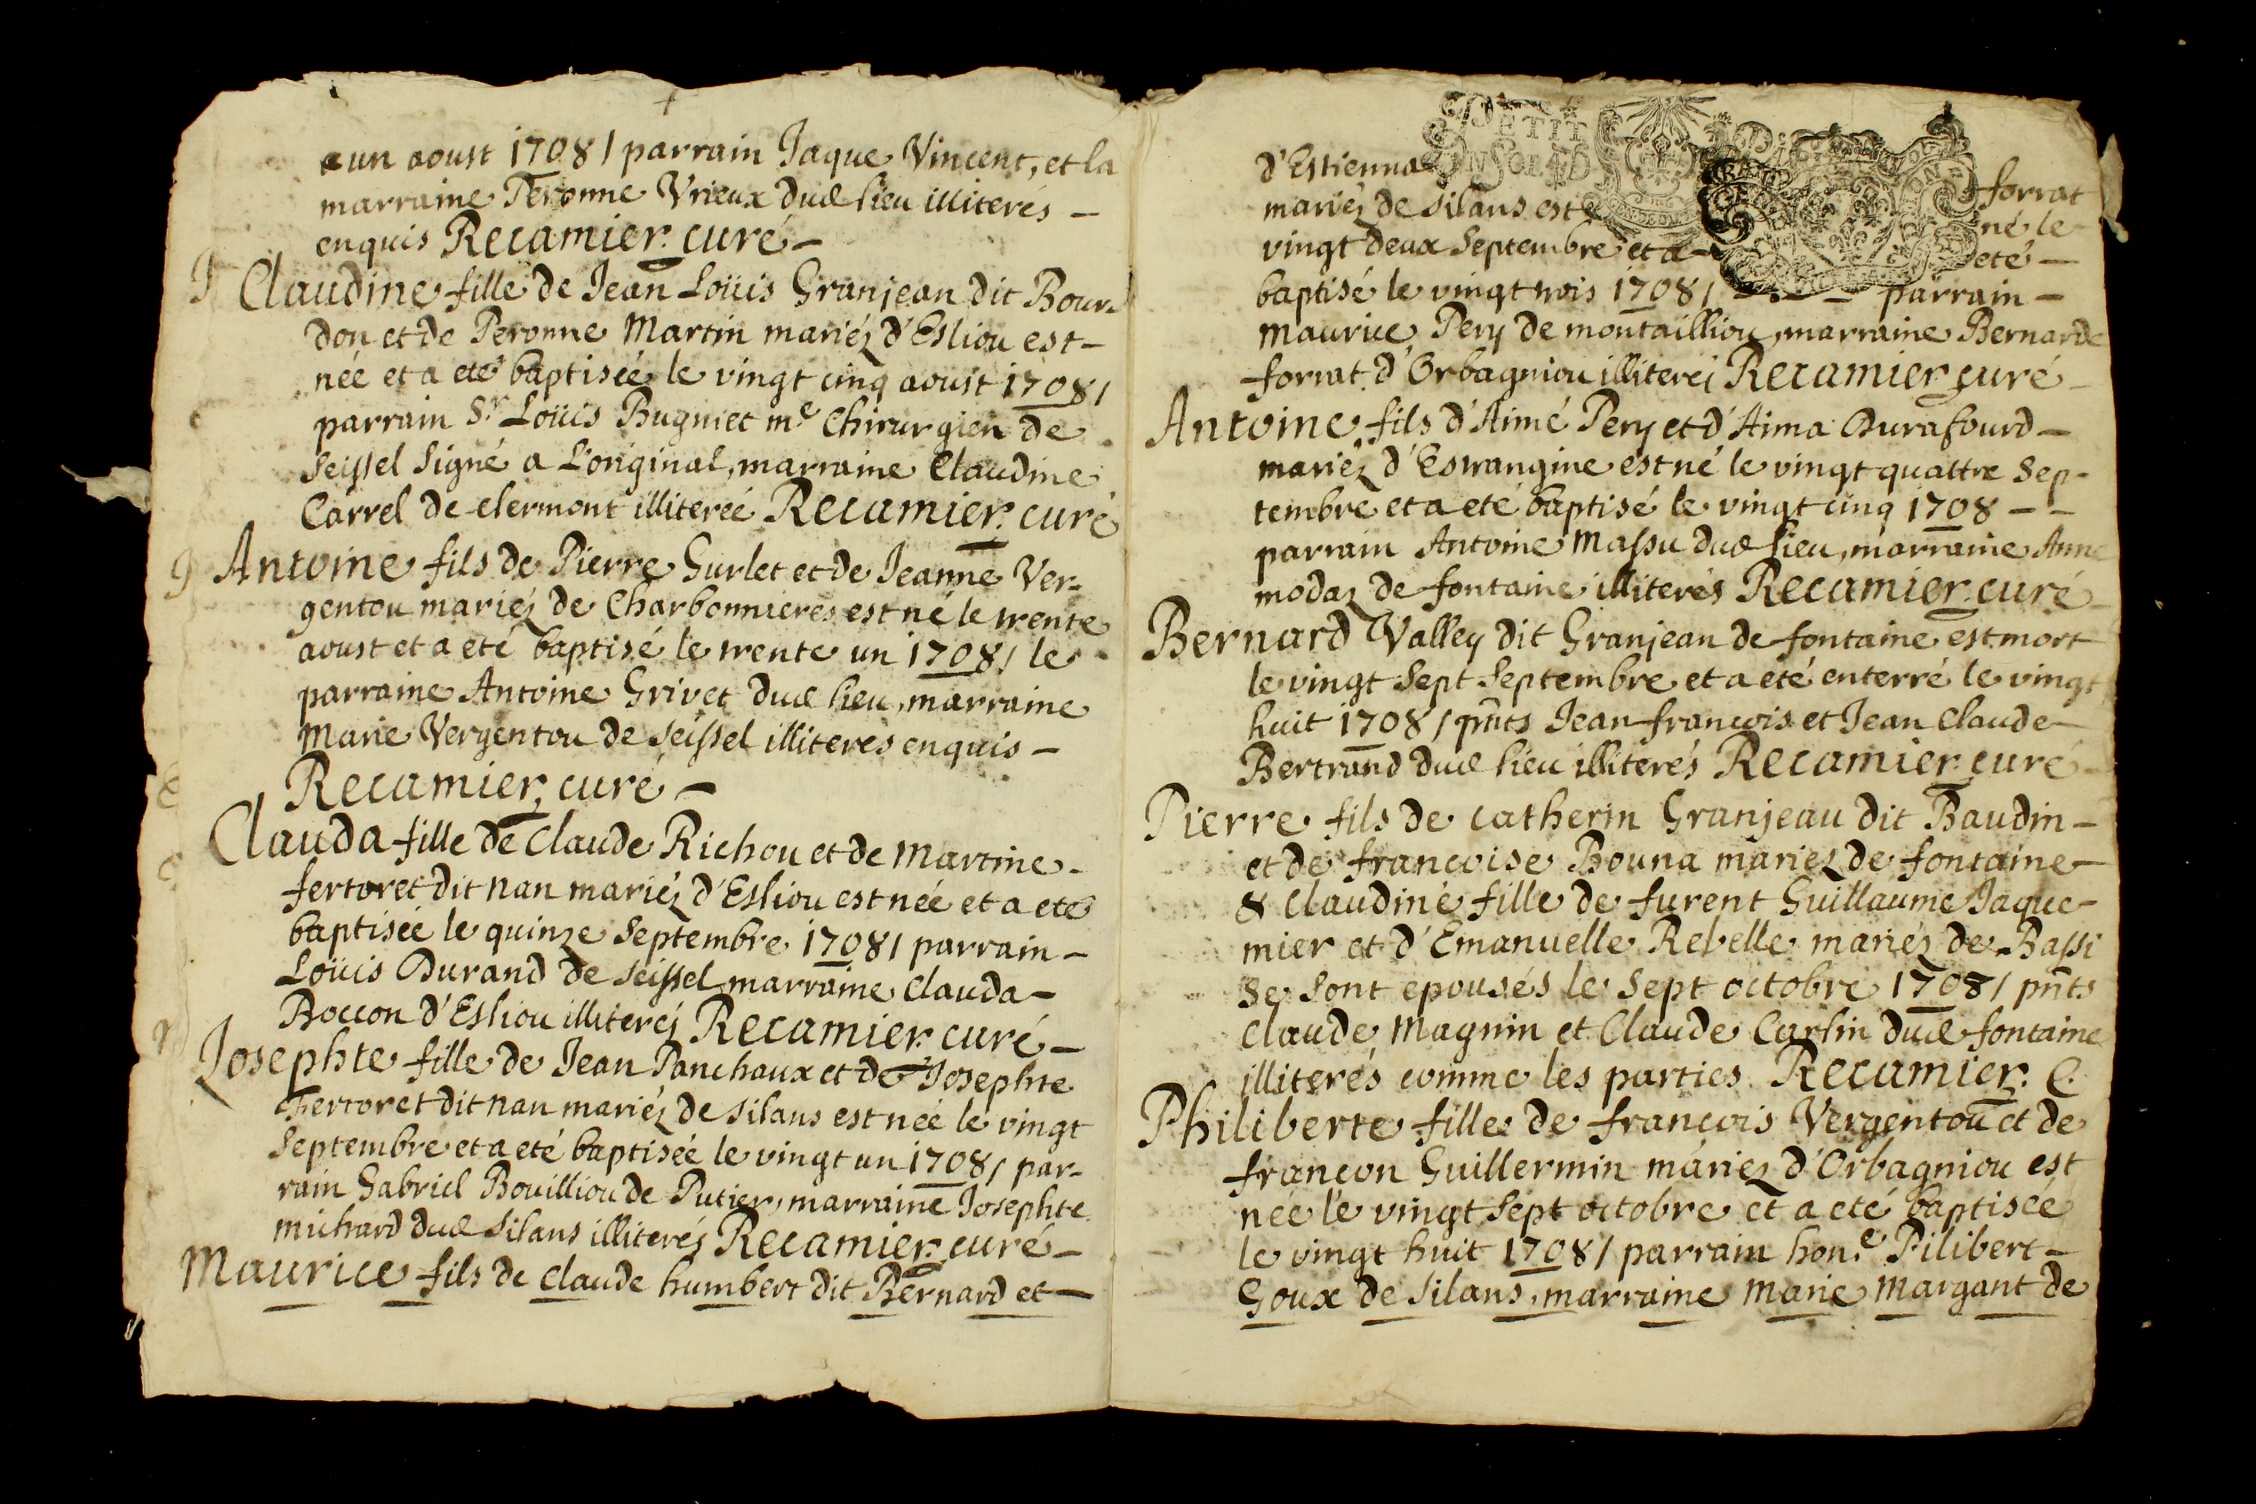 un aoust 1708 / parrain Jaque Vincent, et la
marraine Peronne Vrieux dud lieu illiterés –
enquis Recamier curé –
Claudine fille de Jean Loüis Granjean dit Bour-
don et de Peronne Martin mariéz d'Esliou est –
née et a eté baptiseé le vingt cinq aoust 1708 /
parrain Sr Loüis Bugniet me Chirurgien de
Seissel Signé a L'original, marraine Claudine
Carrel de clermont illitereé Recamier curé
Antoine fils de Pierre Gurlet et de Jeanne Ver-
gentou mariéz de Charbonnieres est né le trente
aoust et a eté baptisé le trente un 1708 / le
parraine Antoine Grivet dud lieu, marraine
Marie Vergentou de Seissel illiteres enquis –
Recamier curé –
Clauda fille de Claude Richou et de Martine –
fertoret dit nan mariéz d'Esliou est née et a eté
baptiseé le quinze Septembre 1708 / parrain –
Loüis Durand de Seissel marraine Clauda –
Boccon d'Esliou illiteréz Recamier curé –
Josephte fille de Jean Panchaux et de Josephte
fertoret dit nan mariéz de Silans est neé le vingt
Septembre et a eté baptiseé le vingt un 1708 / par-
rain Gabriel Bouilliou de Putier, marraine Josephte
michard dud Silans illiteréz Recamier curé –
Maurice fils de Claude humbert dit Bernard et –
PETIT
d'Estienna forrat
mariéz de Silans est né le
vingt deux Septembre et a – eté –
baptisé le vingt trois 1708 / – – – parrain –
Maurice Pery de montailliou, marraine Bernarde
forrat d'Orbagniou illiteréz Recamier curé
Antoine fils d'Aimé Pery et d'Aima Durafourd –
mariéz d'Estrangine est né le vingt quattre Sep-
tembre et a eté baptisé le vingt cinq 1708 – –
parrain Antoine Massu dud lieu, marraine Anne
modaz de fontaine illiterés Recamier curé
Bernard Valley dit Granjean de fontaine est mort
le vingt Sept Septembre et a eté enterré le vingt
huit 1708 / pnts Jean francois et Jean Claude –
Bertrand dud lieu illiterés Recamier curé –
Pierre fils de Catherin Granjeau dit Baudin –
et de francoise Bouna mariez de fontaine –
& Claudine fille de furent Guillaume Jaque-
mier et d'Emanuelle Rebelle mariéz de Bassi
Se Sont epousés le Sept octobre 1708 / pnts
Claude Magnin et Claude Carlin dud fontaine
illiterés comme les parties. Recamier. C.
Philiberte fille de francois Vergentou et de
francon Guillermin mariez d'Orbagniou est
neé le vingt Sept octobre et a eté baptiseé
le vingt huit 1708 / parrain hon.e Pilibert –
Goux de Silans, marraine Marie Margant de